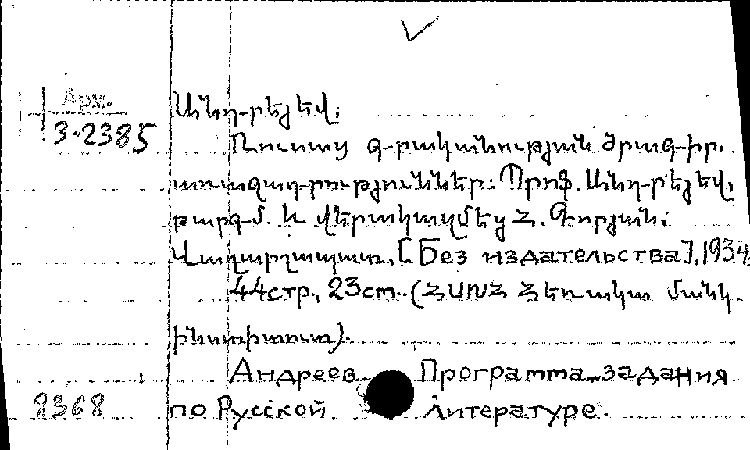 Арм.
3-2385
Անդրեյեվ.
Ռուսաց գրականության ծրագիր.
առաջադրություններ. Պրոֆ. Անդրեյեվ,
թարգմ. և վերակազմեց Հ. Գորյան.
Վաղարշապատ, [Без издательства], 1934,
44стр., 23cm. (ՀՍԽՀ Հեռակա մանկ-
ինստիտուտ).
Андреев Программа-задания
8368 по Русской литературе.